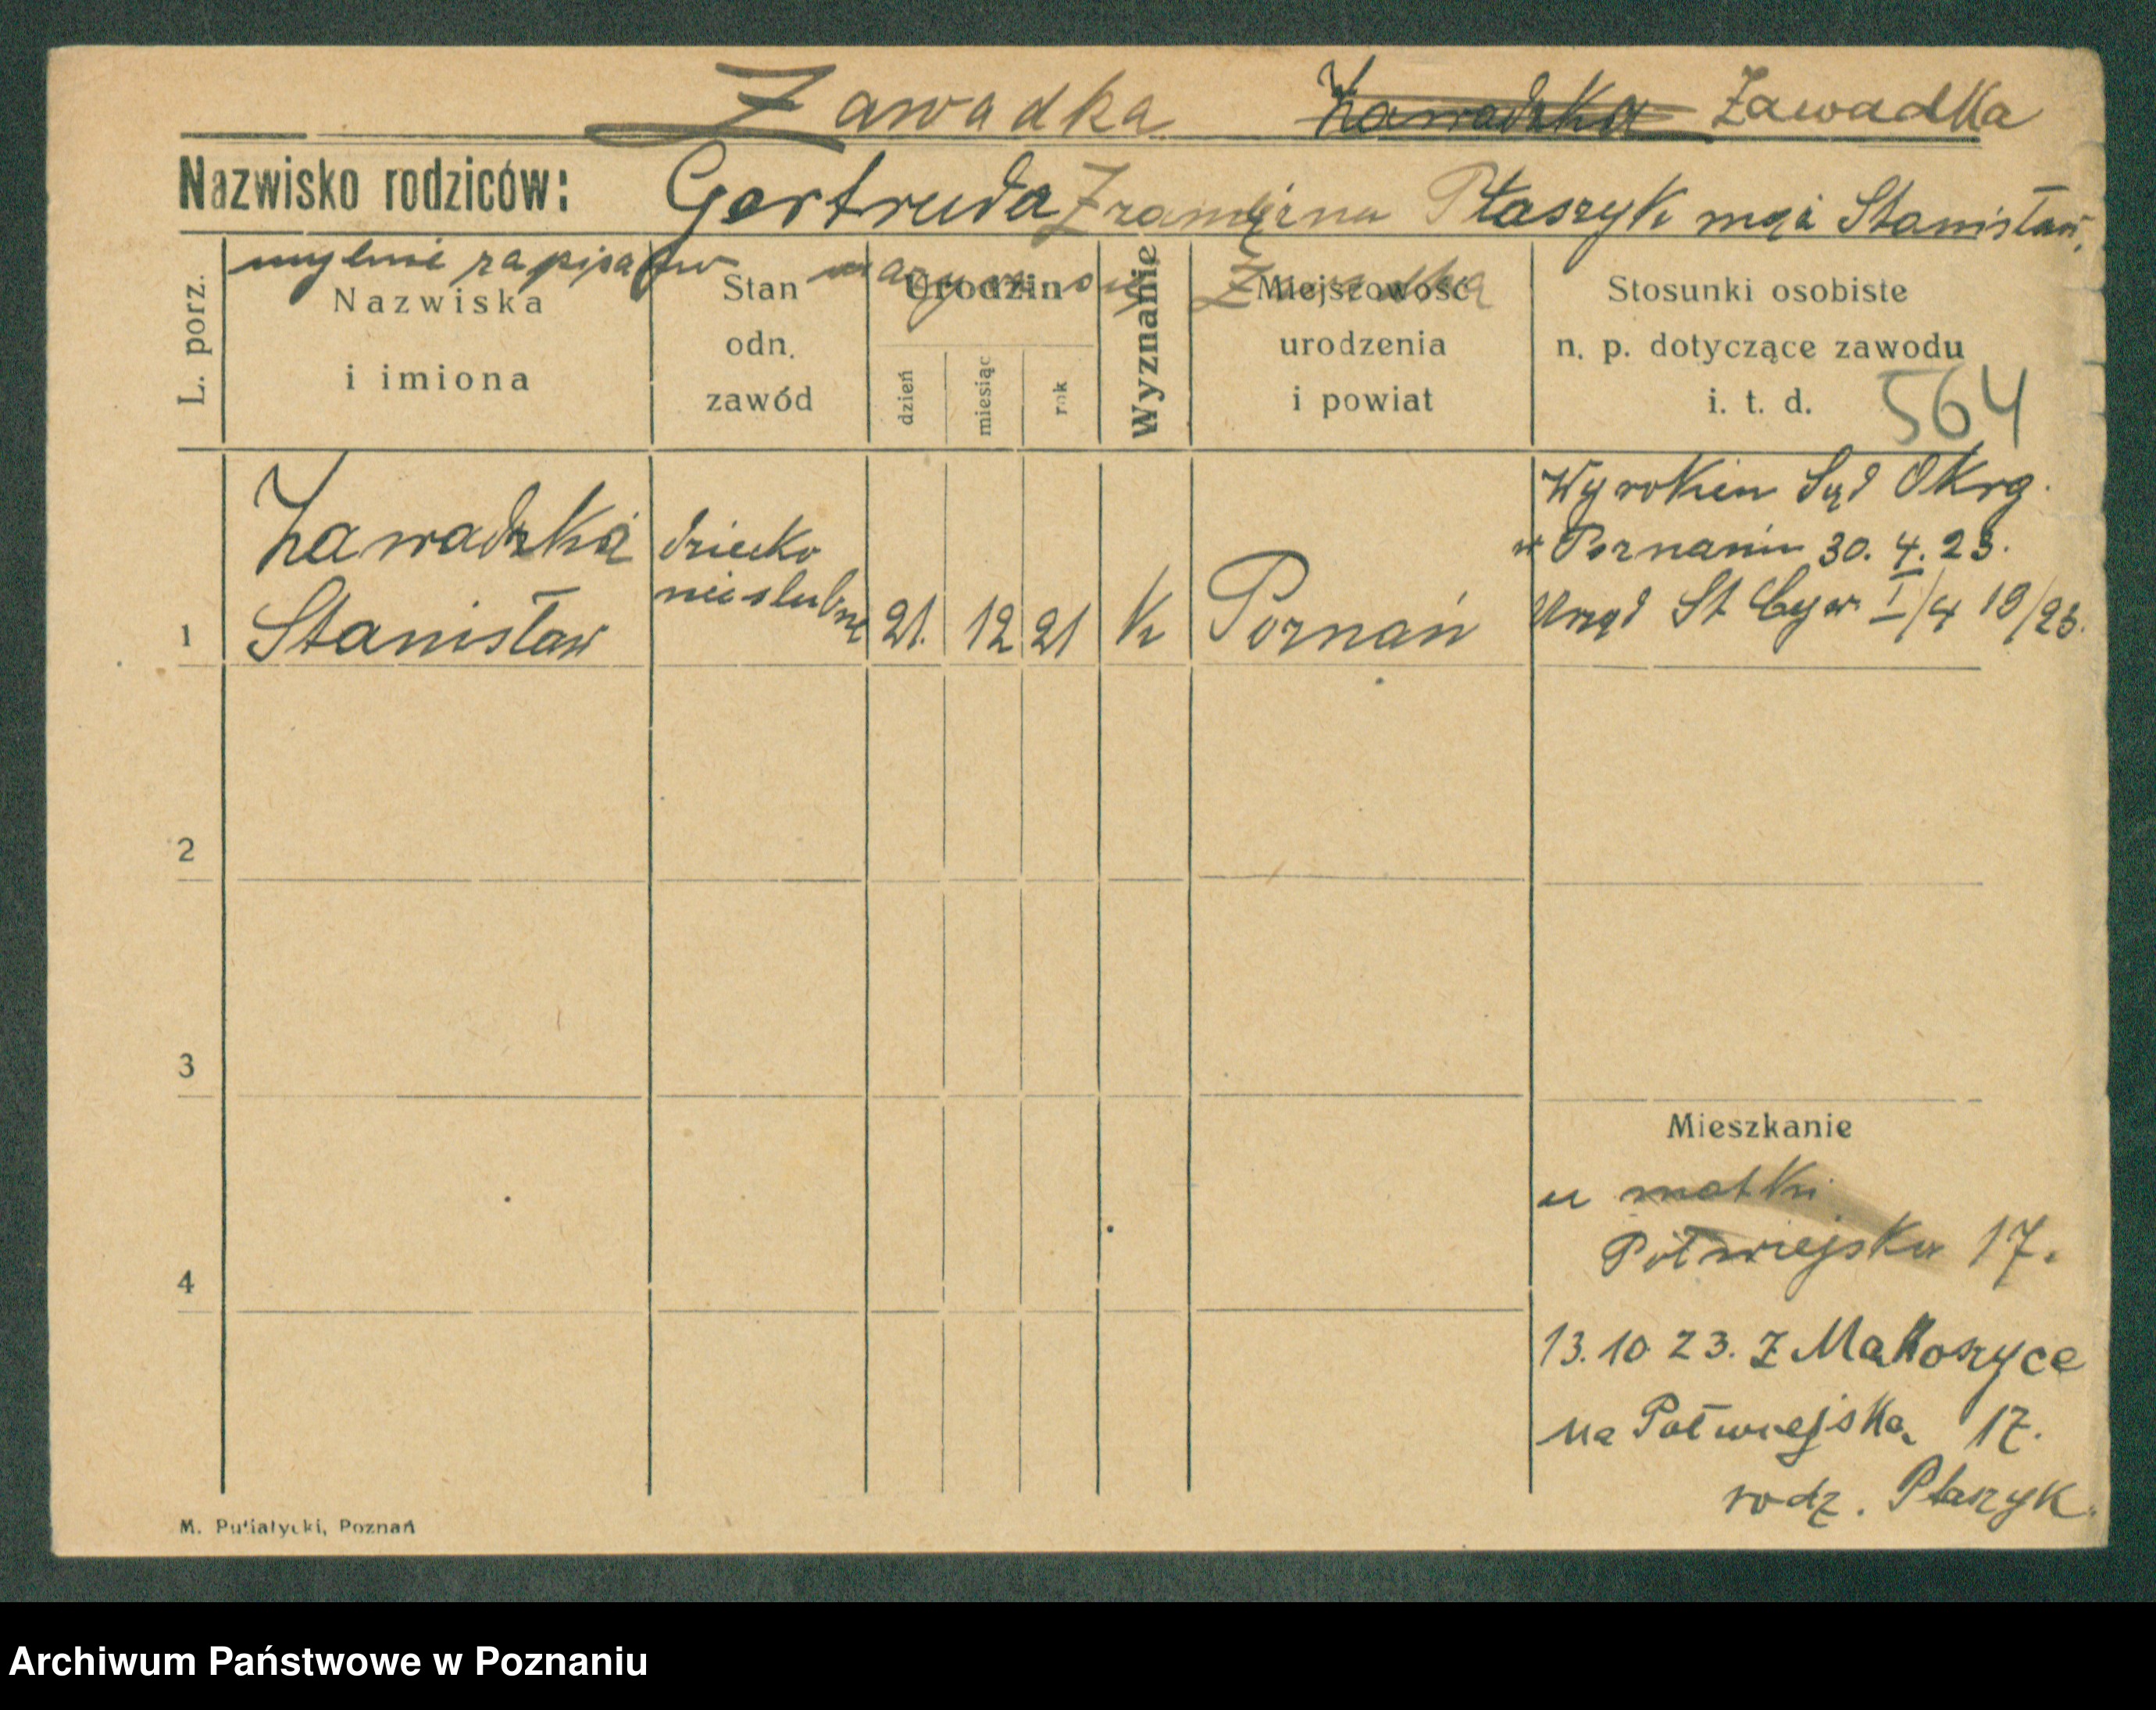 Zawadka Zawadzka Zawadka
Nazwisko rodziców: Gertruda zamężna Ptaszyk mąż Stanisław.
mylnie zapisany nazywa się Zawadka
L. porz.
Nazwiska
i imiona
Stan
odn.
zawód
Urodzin
dzień
miesiąc
rok
Wyznanie
Miejscowość
urodzenia
i powiat
Stosunki osobiste
n. p. dotyczące zawodu
i. t. d. 564
1
Zawadzki
Stanisław
dziecko
nieślubne
21. 12 21
K
Poznań
Wyrokiem Sąd Okrg.
w Poznaniu 30. 4. 23.
Urząd St Cyw I/4 19/23.
2
3
4
Mieszkanie
u matki
Półwiejska 17.
13. 10 23. z Makoszyce
na Półwiejska 17.
rodz. Ptaszyk.
M. Putiatycki, Poznań
Archiwum Państwowe w Poznaniu